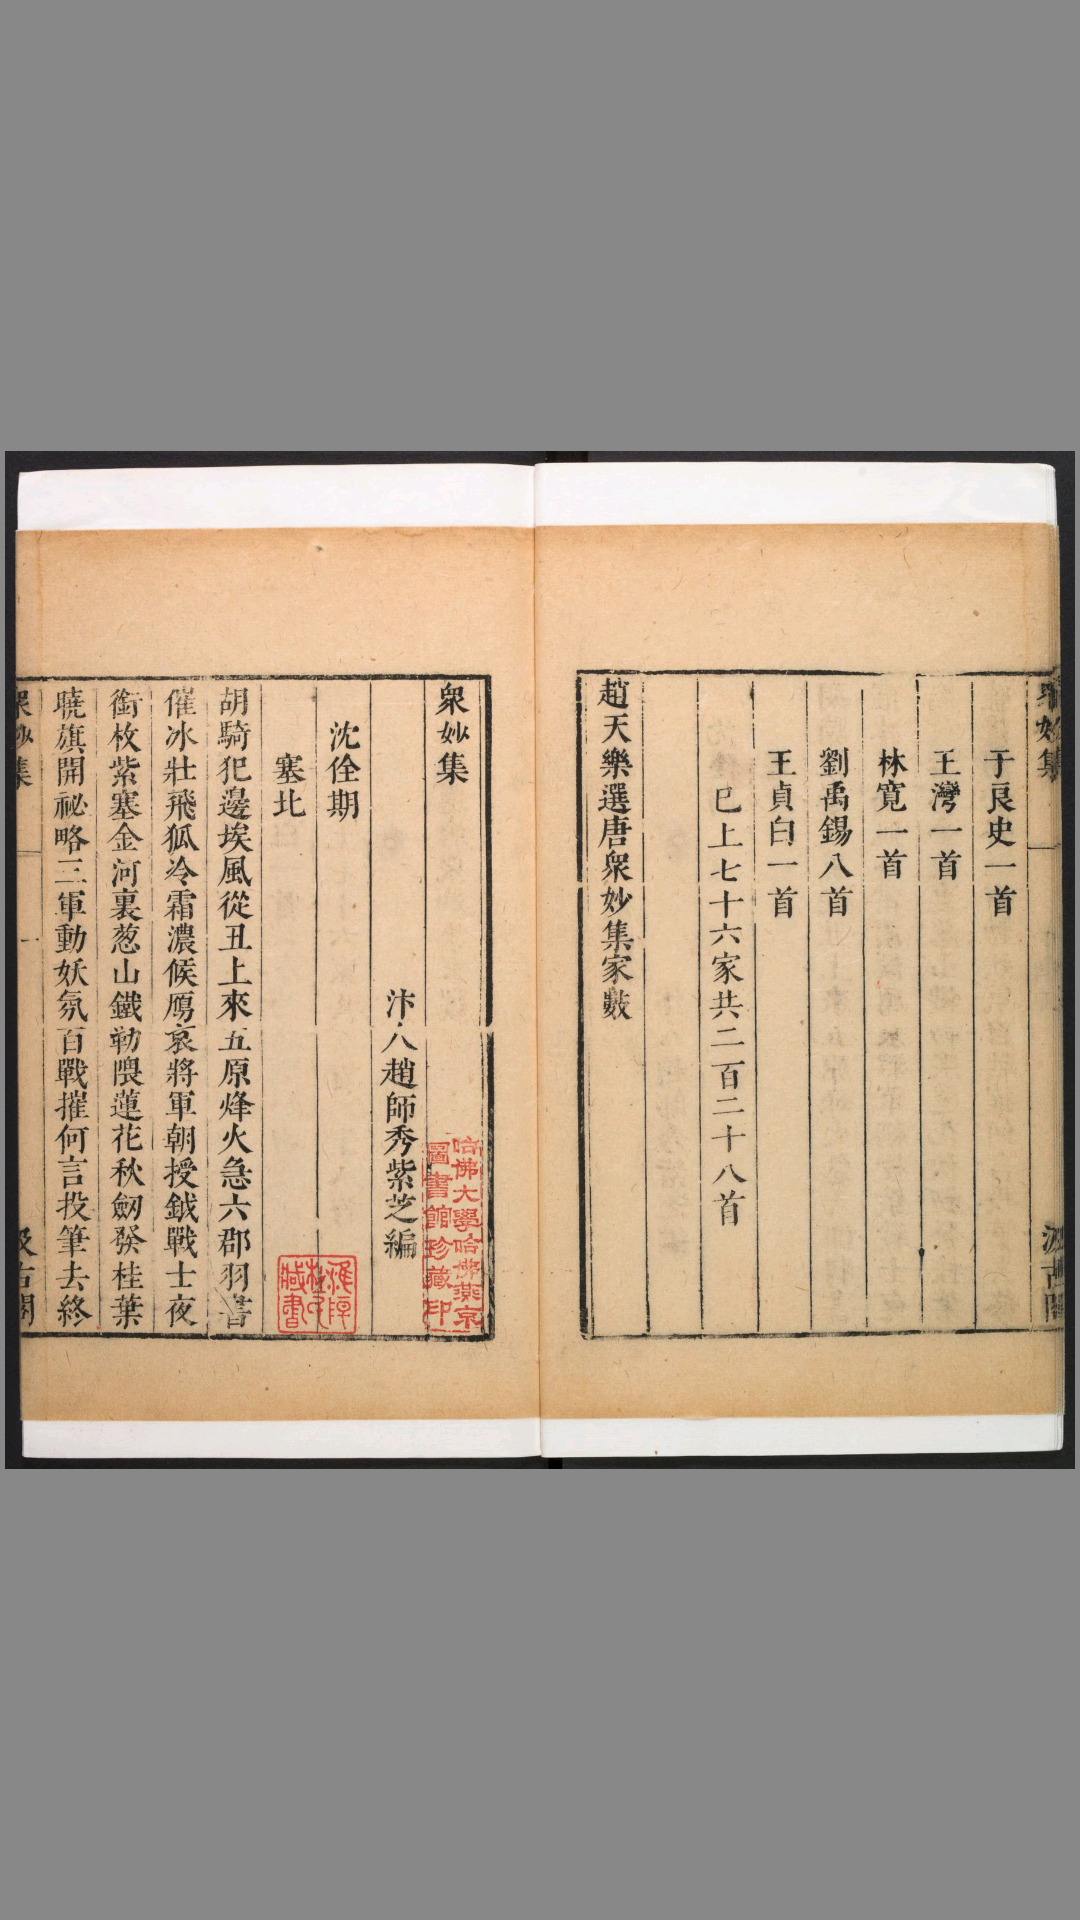 衆妙集
汲古閣
于良史一首
王灣一首
林寬一首
劉禹錫八首
王貞白一首
已上七十六家共二百二十八首
趙天樂選唐衆妙集家數
衆妙集
哈佛大學哈佛燕京
圖書館珍藏印
汴人趙師秀紫芝編
沈佺期
塞北
胡騎犯邊埃風從丑上來五原烽火急六郡羽書
催冰壯飛狐冷霜濃候鴈哀將軍朝授鉞戰士夜
銜枚紫塞金河裏葱山鐵勒隈蓮花秋劒發桂葉
曉旗開祕略三軍動妖氛百戰摧何言投筆去終
衆妙集
一
汲古閣